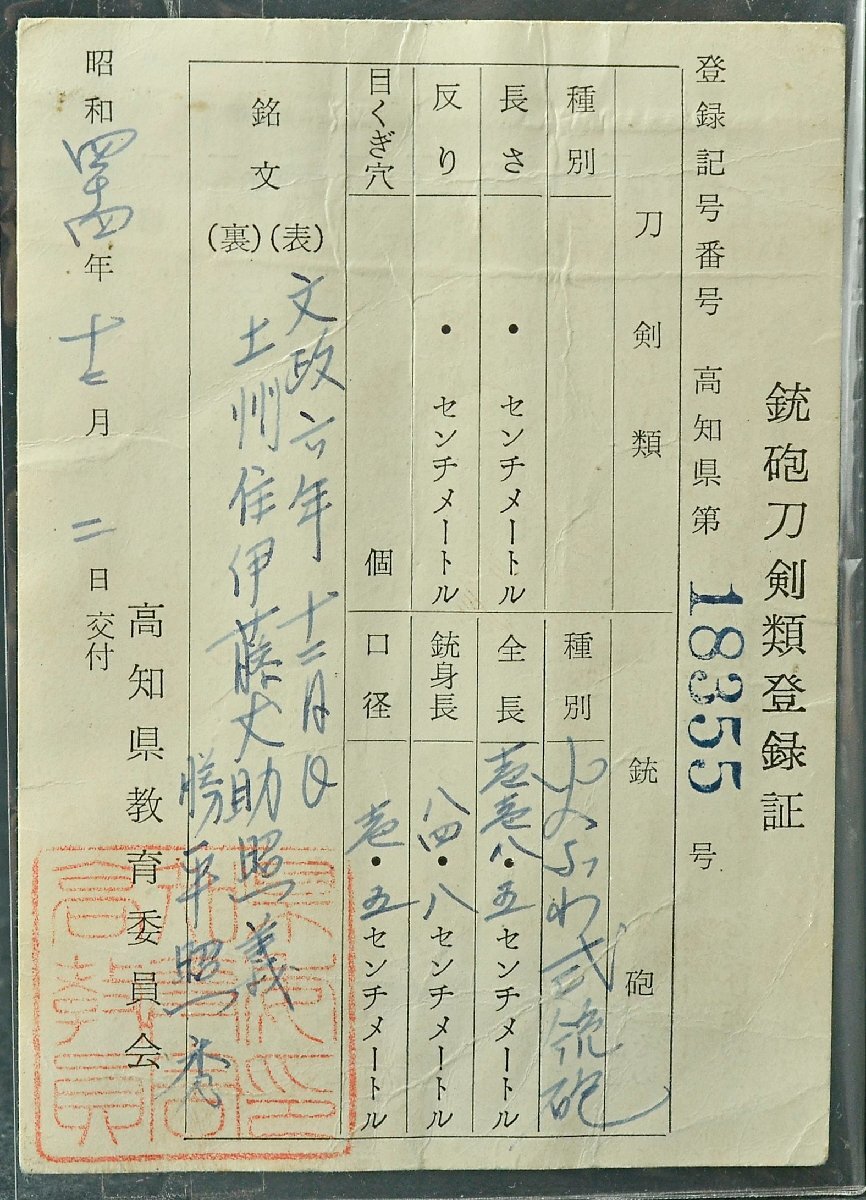 銃砲刀剣類登録証
登録記号番号 高知県第 18355 号
刀剣類
種別
長さ ・ センチメートル
反り ・ センチメートル
目くぎ穴 個
銃砲
種別 火なわ式銃砲
全長 壱壱八・五センチメートル
銃身長 八四・八センチメートル
口径 壱・五センチメートル
銘文
(表) 文政六年十二月日
(裏) 土州住伊藤丈助照義
勝平照秀
昭和四十四年十二月二日交付
高知県教育委員会